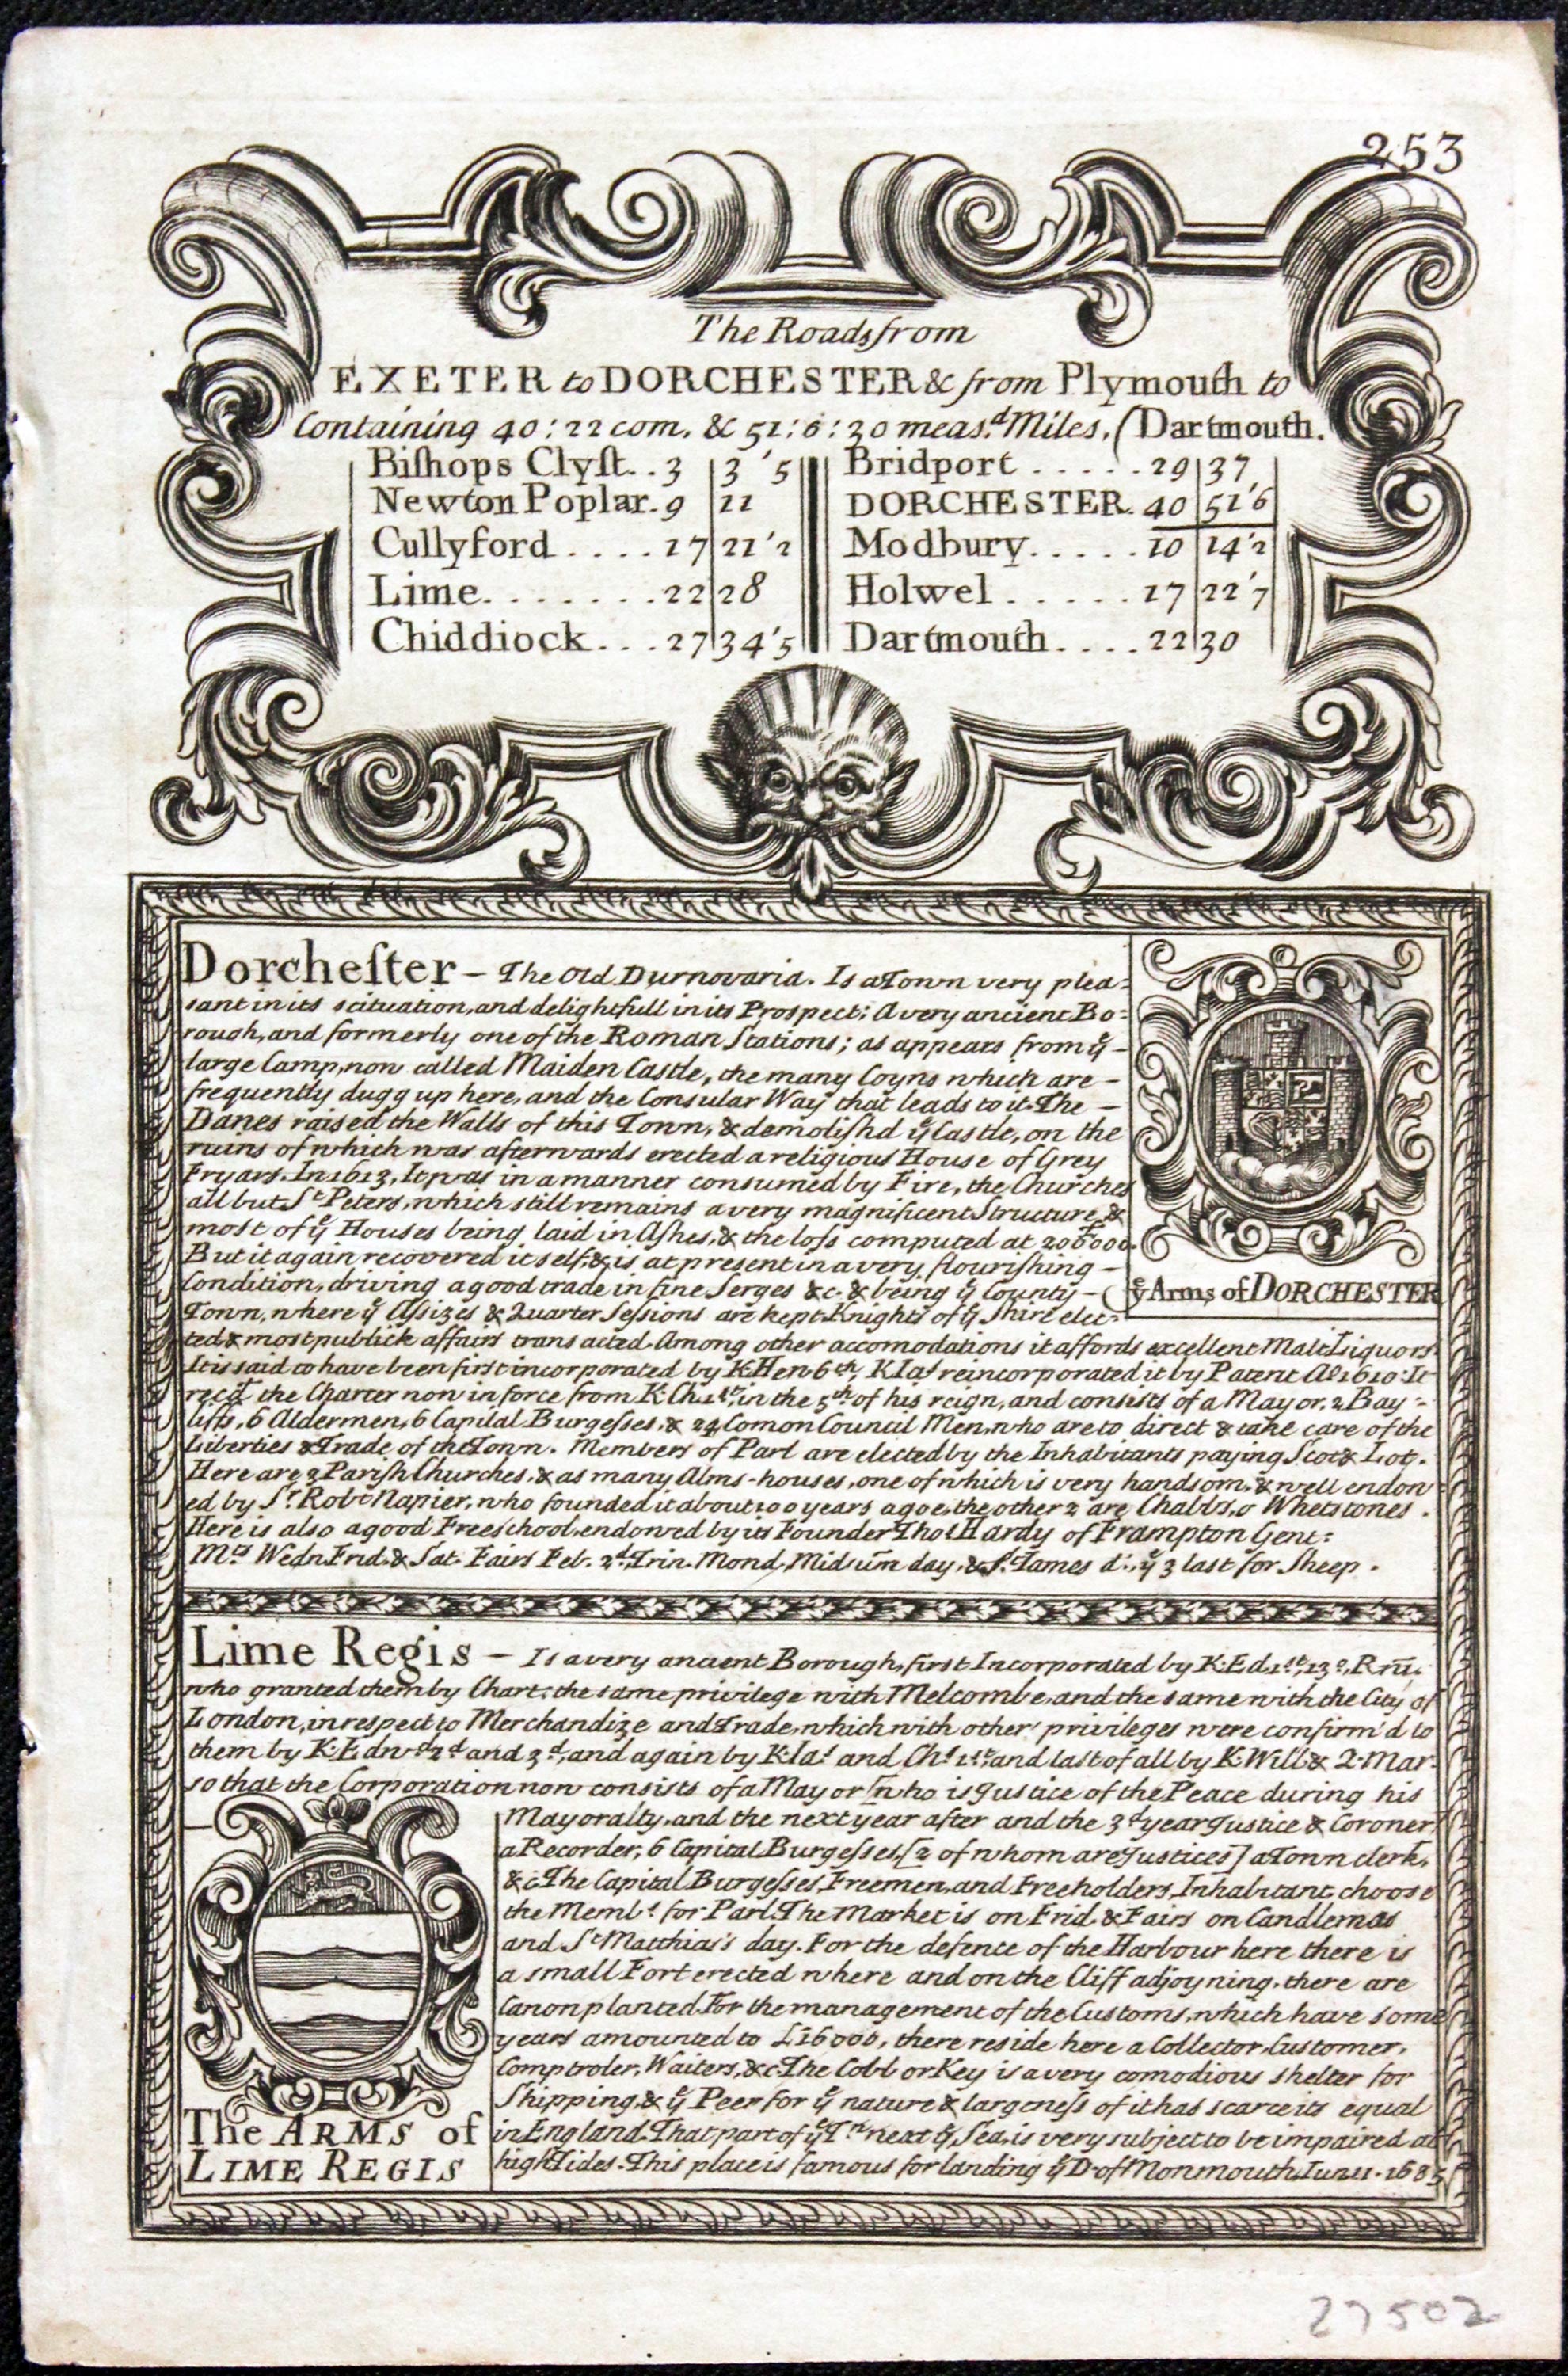 253
The Roads from
EXETER to DORCHESTER & from Plymouth to
Containing 40 : 22 com. & 51 : 6 : 30 meas.d Miles. (Dartmouth.
Biſhops Clyſt . . 3 | 3 '5
Newton Poplar . 9 | 11
Cullyford . . . . 17 | 21 '2
Lime . . . . . . . 22 | 28
Chiddiock . . . 27 | 34 '5
Bridport . . . . . 29 | 37
DORCHESTER . 40 | 51 '6
Modbury . . . . . 10 | 14 '2
Holwel . . . . . 17 | 22 '7
Dartmouth . . . . 22 | 30
Dorcheſter – The Old Durnovaria. Is a Town very plea=
sant in its scituation, and delightfull in its Prospect; A very ancient Bo=
rough, and formerly one of the Roman Stations; as appears from ye –
large Camp, now called Maiden Castle, the many Coyns which are –
frequently dugg up here, and the Consular Way that leads to it. The –
Danes raised the Walls of this Town, & demoliſhd ye Castle, on the
ruins of which was afterwards erected a religious House of Grey
Fryars. In 1613, It was in a manner consumed by Fire, the Churches
all but St Peters, which still remains a very magnificent Structure, &
most of ye Houses being laid in Aſhes, & the loſs computed at 200000
But it again recovered it self, & is at present in a very flouriſhing –
Condition, driving a good trade in fine Serges &c. & being ye County – (
Town, where ye Aſsizes & Quarter Seſsions are kept Knights of ye Shire elec=
ted, & most publick affairs transacted. Among other accomodations it affords excellent Malt Liquors.
It is said to have been first incorporated by K. Hen 6th, K Ias reincorporated it by Patent AD 1610: It
recd the Charter now in force from K. Ch. 1st, in the 5th of his reign, and consists of a Mayor, 2 Bay=
liffs, 6 Aldermen, 6 Capital Burgeſses, & 24 Comon Council Men, who are to direct & take care of the
Liberties & Trade of the Town. Members of Parl are elected by the Inhabitants paying Scot & Lot.
Here are 3 Pariſh Churches, & as many Alms-houses, one of which is very handsom, & well endow
ed by Sr Robt Napier, who founded it about 100 years agoe, the other 2 are Chabbs, o Whetstones .
Here is also a good Freeschool, endowed by its Founder Thos Hardy of Frampton Gent:
Mts Wedn Frid. & Sat. Fairs Feb. 2d. Trin. Mond, Midsum day, & St. Iames d:, ye 3 last for Sheep .
ye Arms of DORCHESTER
Lime Regis – Is a very ancient Borough, first Incorporated by K. Ed. 1st, 13o, R
who granted them by Chart: the same privilege with Melcombe, and the same with the City of
London, in respect to Merchandize and Trade, which with other privileges were confirm'd to
them by K. Edwd 2d and 3d, and again by K. Ias and Chs 1st, and last of all by K. Will & Q. Mar.
so that the Corporation now consists of a Mayor [who is Justice of the Peace during his
Mayoralty, and the next year after and the 3d year Justice & Coroner]
a Recorder, 6 Capital Burgeſses, [2 of whom are Justices] a Town clerk,
&c. The Capital Burgeſses, Freemen, and Freeholders, Inhabitant, choose
the Membs for Parl. The Market is on Frid. & Fairs on Candlemas
and St Matthias's day. For the defence of the Harbour here there is
a small Fort erected where and on the Cliff adjoyning, there are
Canon planted. For the management of the Customs, which have some
years amounted to £16000, there reside here a Collector, Customer,
Comptroler, Waiters, &c. The Cobb or Key is a very comodious shelter for
Shipping, & ye Peer for ye nature & largeneſs of it has scarce its equal
in England. That part of ye Tn next ye Sea, is very subject to be impaired at
high Tides. This place is famous for landing ye D. of Monmouth Iun. 11. 1685
The ARMS of
LIME REGIS
27502